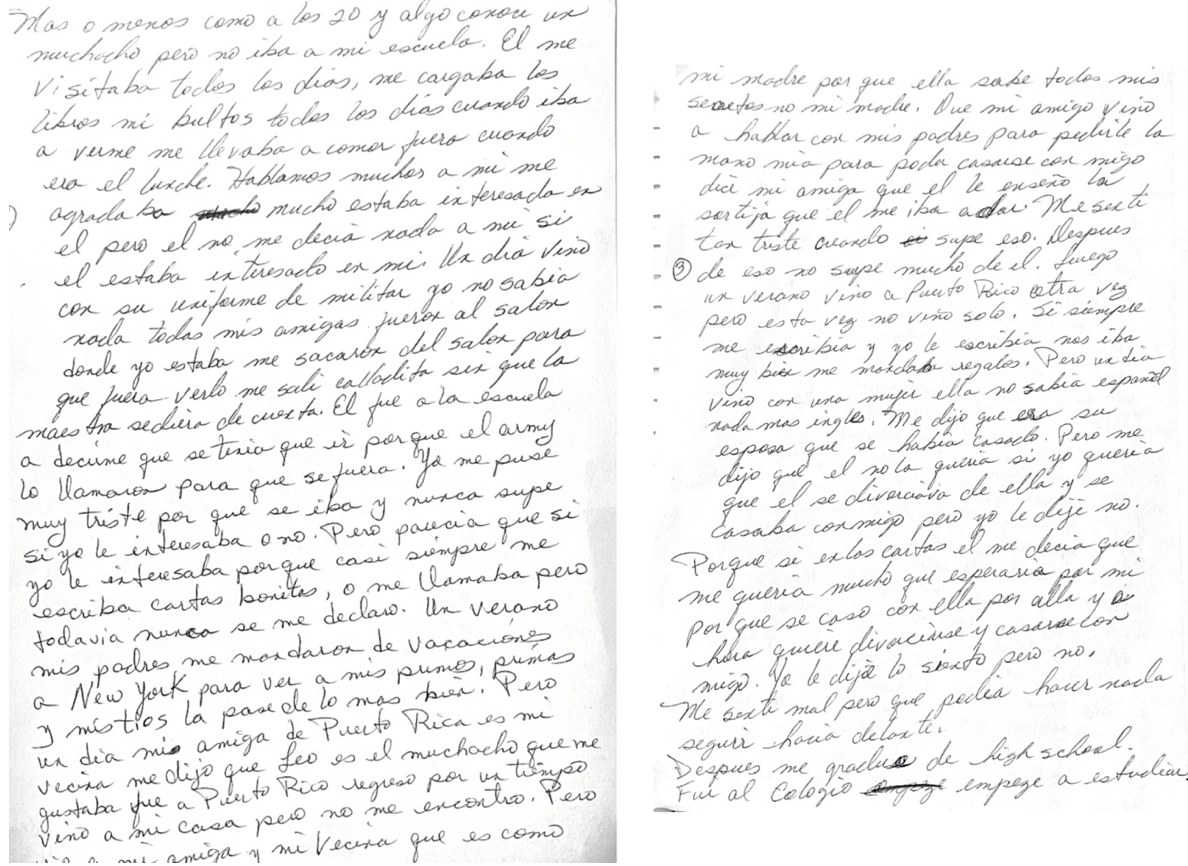 Mas o menos como a los 20 y algo conoci un
muchacho pero no iba a mi escuela. El me
visitaba todos los dias, me cargaba los
libros mi bultos todos los dias cuando iba
a verme me llevaba a comer fuera cuando
era el lunche. Hablamos muchos a mi me
agradaba mucho estaba interesada en
el pero el no me decia nada a mi si
el estaba interesado en mi. Un dia vino
con su uniforme de militar yo no sabia
nada todas mis amigas fueron al salon
donde yo estaba me sacaron del salon para
que fuera verlo me sali calladita sin que la
maestra sediera de cuenta. El fue a la escuela
a decirme que se tenia que ir porque el army
lo llamaron para que se fuera. Yo me puse
muy triste por que se iba y nunca supe
si yo le interesaba o no. Pero parecia que si
yo le interesaba porque casi siempre me
escriba cartas bonitas, o me llamaba pero
todavia nunca se me declaro. Un verano
mis padres me mandaron de vacaciones
a New York para ver a mis primos, primas
y mis tios la pase de lo mas bien. Pero
un dia mi amiga de Puerto Rica es mi
vecina me dijo que Leo es el muchacho que me
gustaba fue a Puerto Rico regreso por un tiempo
vino a mi casa pero no me encontro. Pero
a mi amiga y mi vecina que es como
mi madre por que ella sabe todos mis
secretos no mi madre. Que mi amigo vino
a hablar con mis padres para pedirle la
mano mia para poder casarse con migo
dice mi amiga que el le enseño la
sortija que el me iba a dar. Me senti
tan triste cuando supe eso. Despues
③ de eso no supe mucho de el. Luego
un verano vino a Puerto Rico otra vez
pero esta vez no vino solo. Si siempre
me escribia y yo le escribia nos iba
muy bien me mandaba regalos. Pero un dia
vino con una mujer ella no sabia español
nada mas ingles. Me dijo que era su
esposa que se habia casado. Pero me
dijo que el no la queria si yo queria
que el se divorciava de ella y se
casaba conmigo pero yo le dije no.
Porque si en las cartas el me decia que
me queria mucho que esperaria por mi
por que se caso con ella por alla y a
hora quiere divorcirse y casarse con
migo. Yo le dije lo siento pero no.
Me senti mal pero que podia hacer nada
seguir hacia delante.
Despues me gradue de high school.
Fui al Colegio empeze a estudiar.